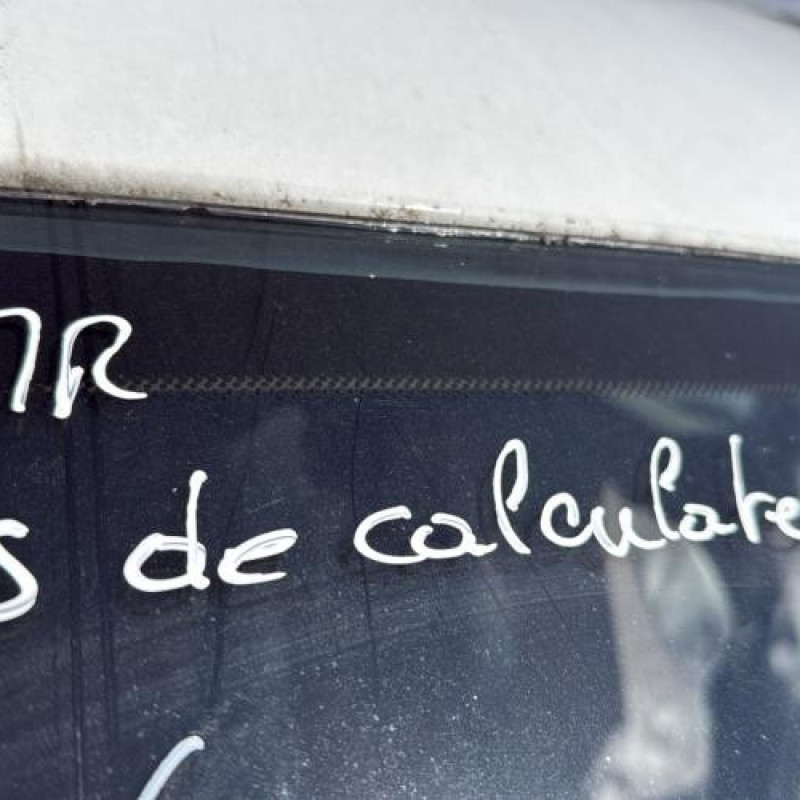 R
s de calculate